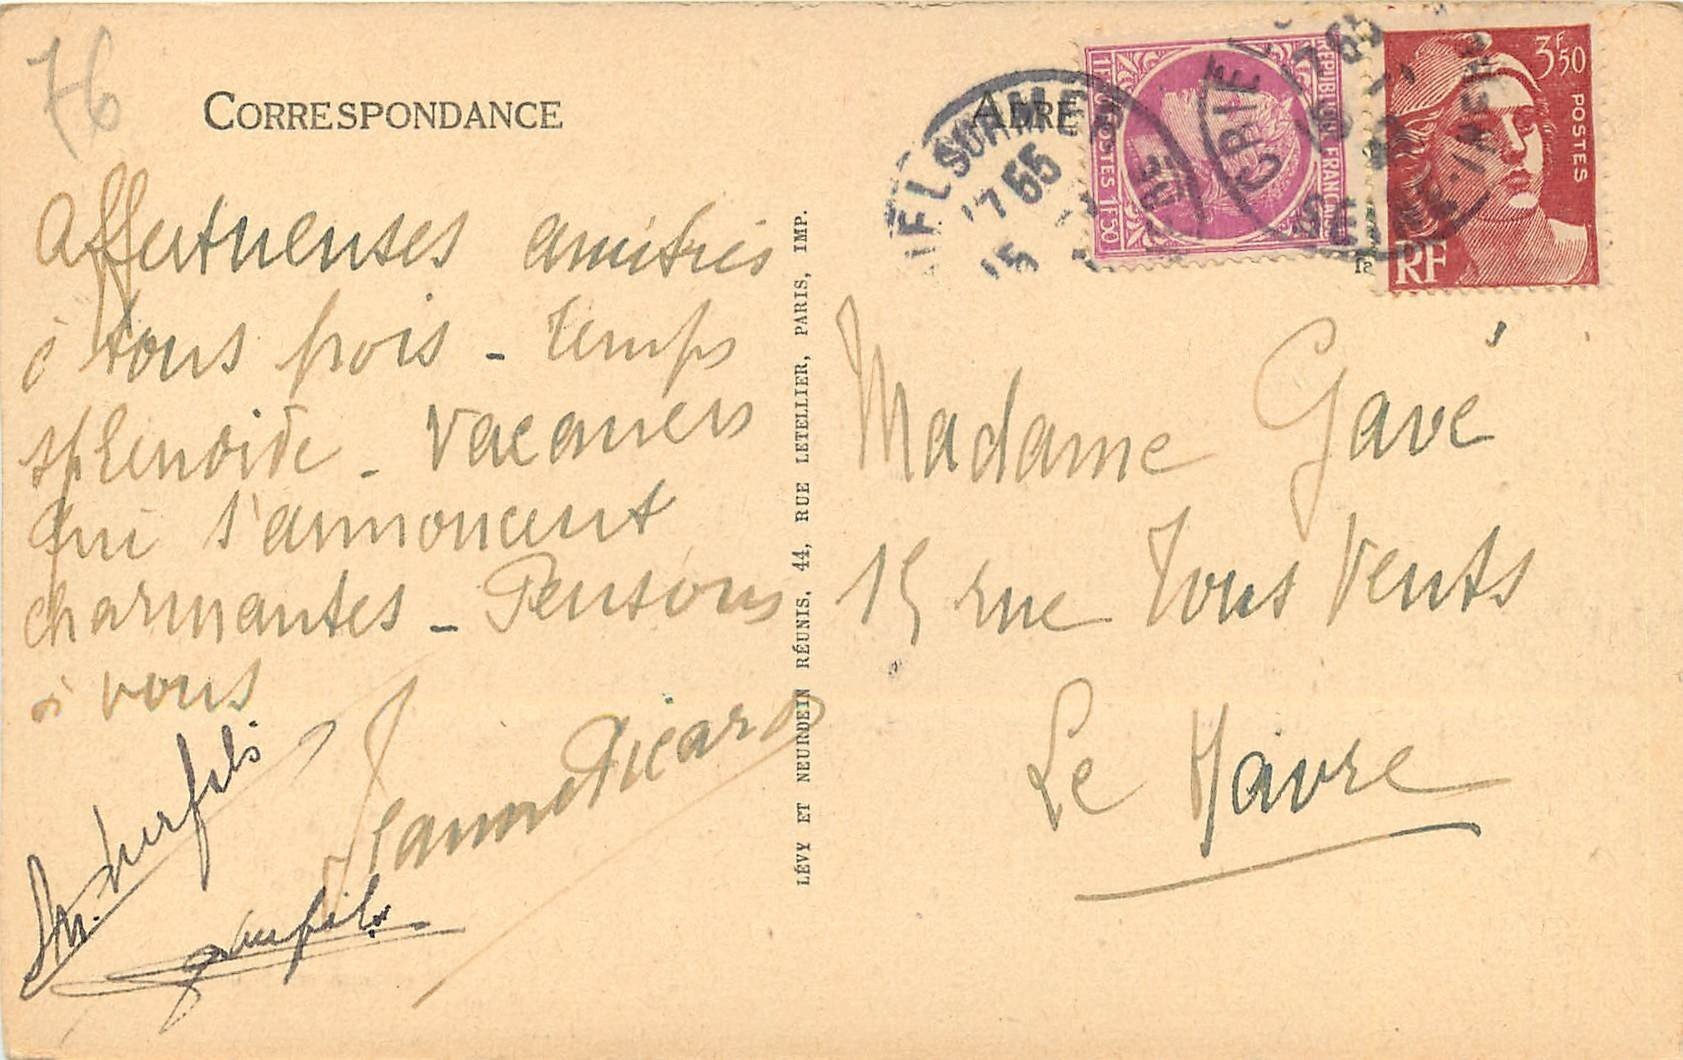 76
CORRESPONDANCE
Affectueuses amitiés
à tous trois - temps
splendide - Vacances
qui s'annoncent
charmantes - Pensons
à vous
Jeanne Picard
LÉVY ET NEURDEIN RÉUNIS, 44, RUE LETELLIER, PARIS, IMP.
ADRE
RÉPUBLIQUE FRANÇAISE
1F50 POSTES 1F50
3F50
POSTES
RF
CRIEL
SEINE-INFRE
Madame Gavé
15 rue Tous Vents
Le Havre